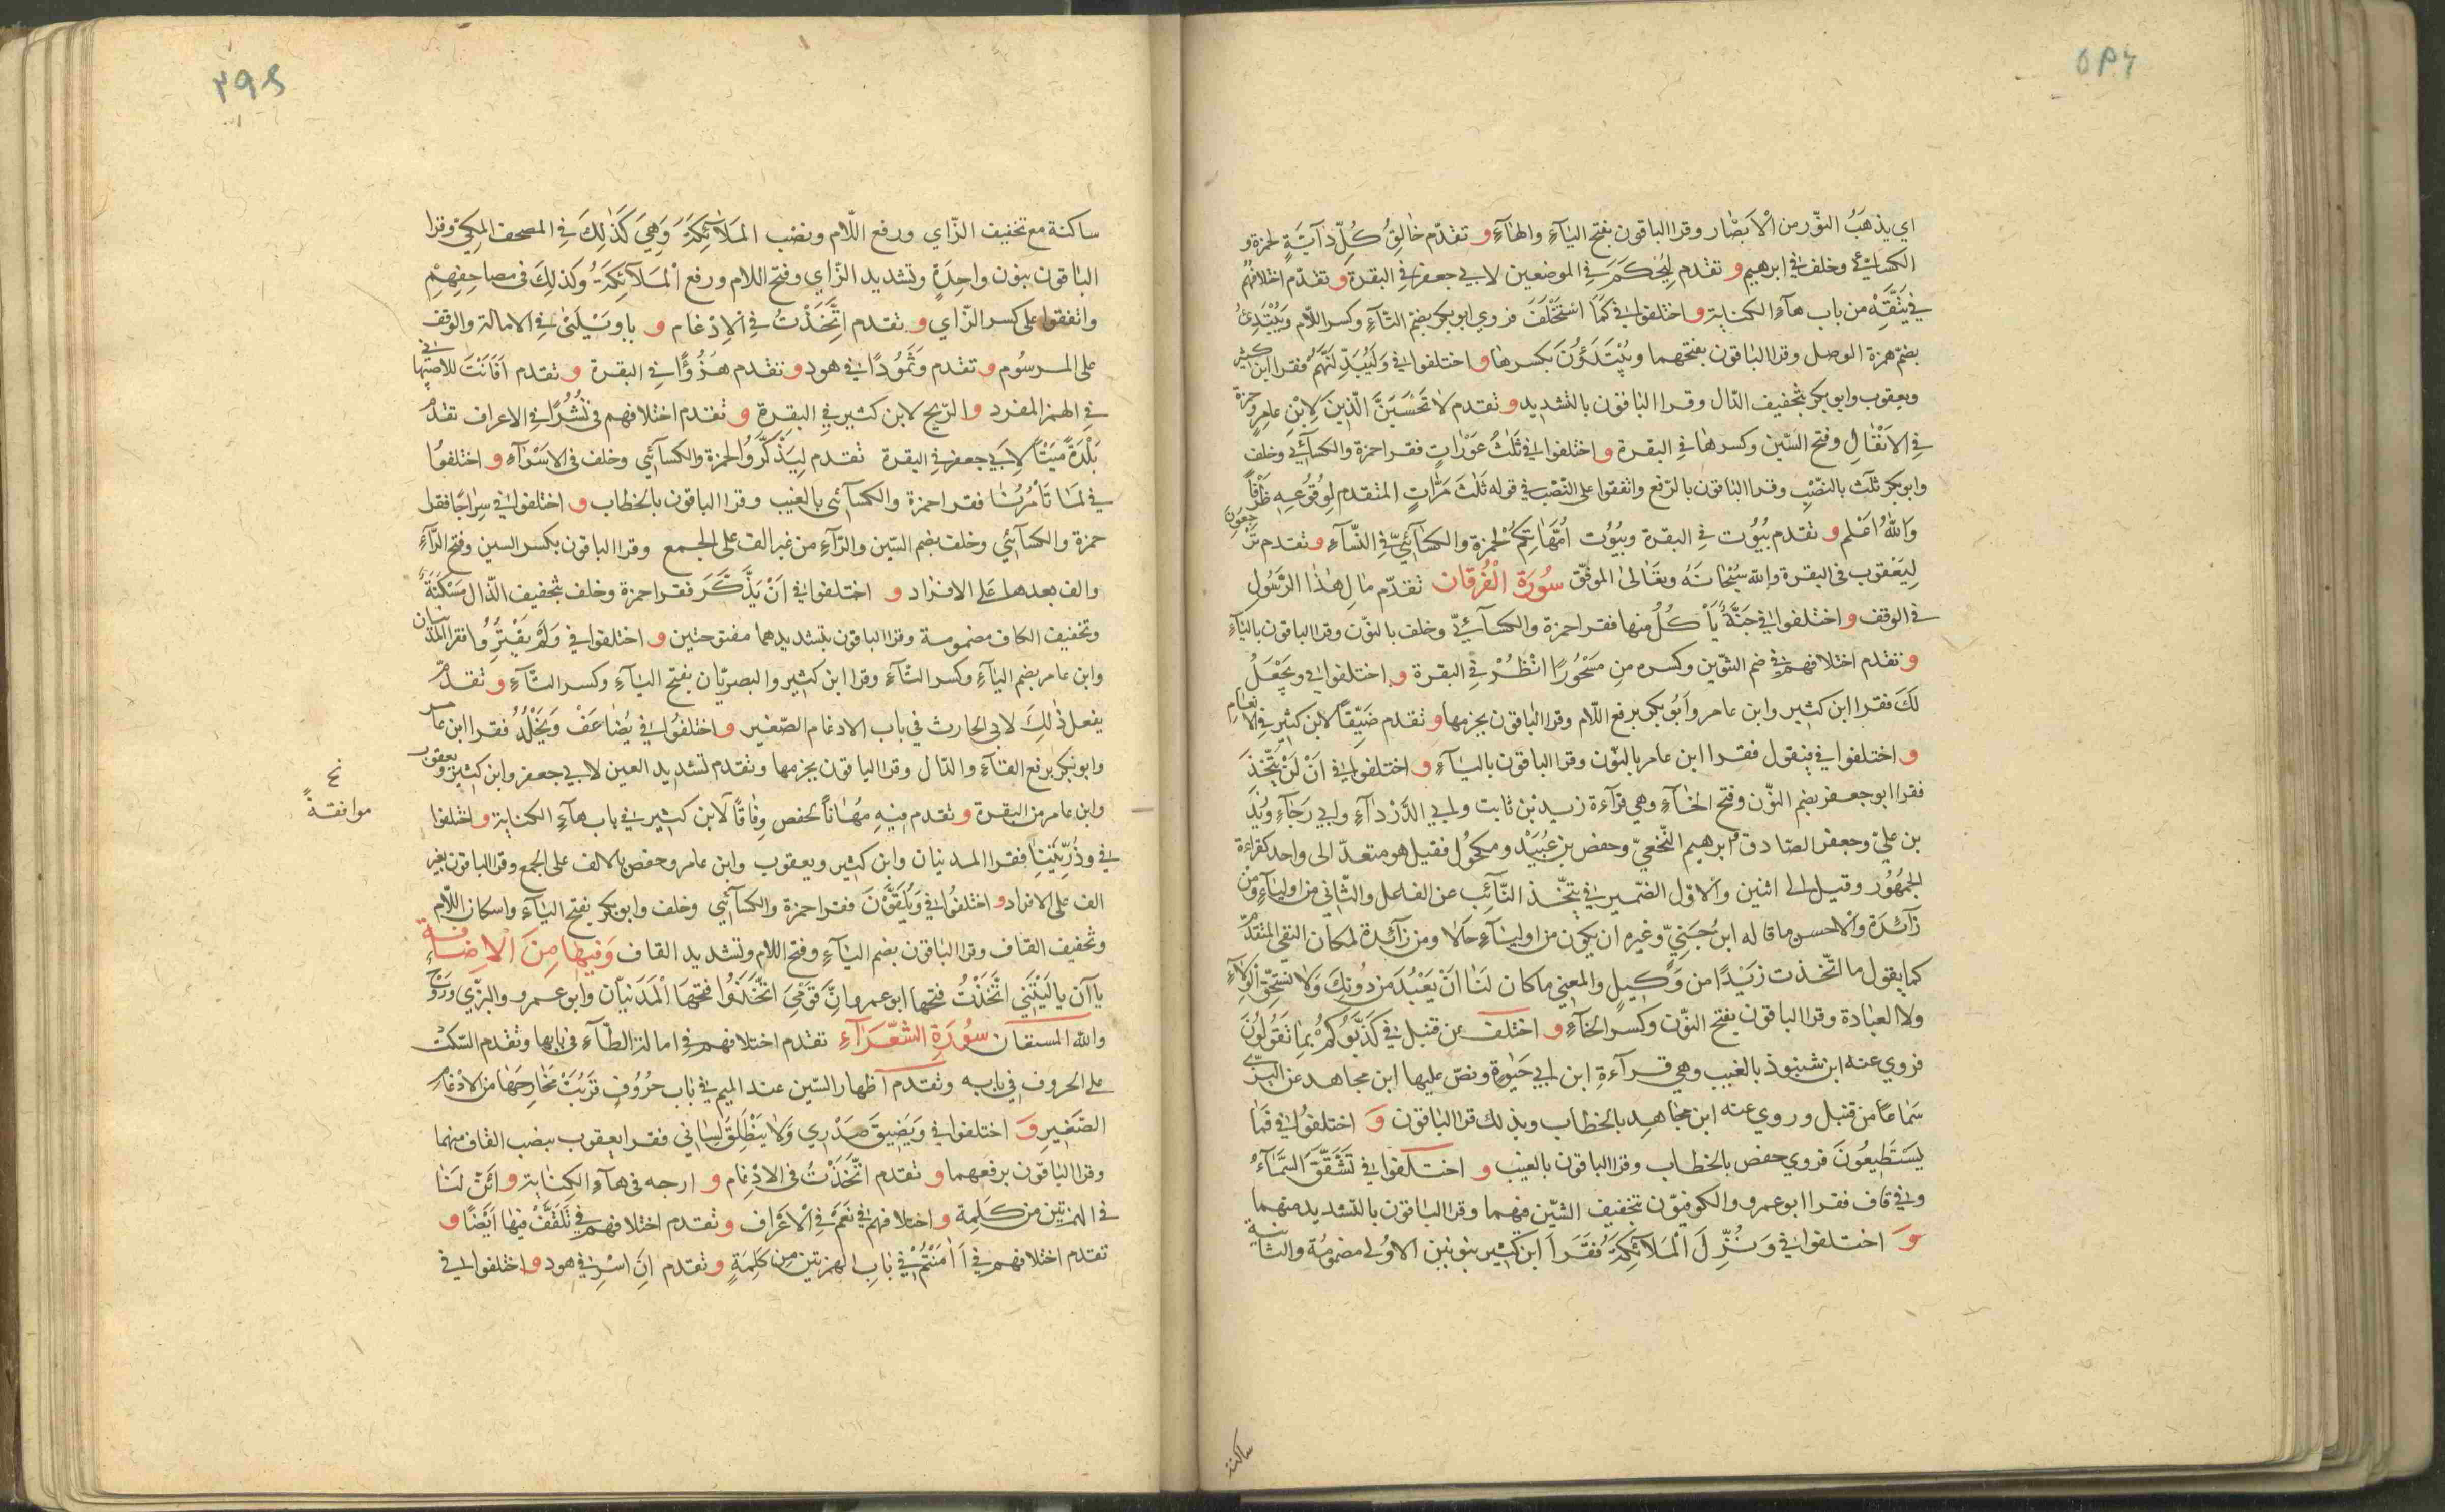 اي يذهب النور من الابصار وقرا الباقون بفتح اليآء والهآء و تقدم خالق كل دآبة لحمزة و
الكسائي وخلف في ابرهيم و تقدم ليحكم في الموضعين لابي جعفر في البقرة و تقدم اختلافهم
في يتقه من باب هآء الكناية و اختلفوا في كما استخلف فروي ابو بكر بضم التآء وكسر اللام ويبتدئ
بضم همزة الوصل وقرا الباقون بفتحهما ويبتدؤن بكسرها و اختلفوا في وليبدلنهم فقرا ابن كثير
ويعقوب وابو بكر بتخفيف الدال وقرا الباقون بالتشديد و تقدم لا تحسبن الذين لابن عامر وحمزة
في الانفال وفتح السين وكسرها في البقرة و اختلفوا في ثلث عورات فقرا حمزة والكسآئي وخلف
وابو بكر ثلث بالنصب وقرا الباقون بالرفع واتفقوا على النصب في قوله ثلث مرات المتقدم لوقوعه ظرفاً
والله اعلم و تقدم بيوت في البقرة وبيوت امهاتكم لحمزة والكسآئي في النسآء و تقدم ترجعون
ليعقوب في البقرة والله سبحانه وتعالى الموفق سورة الفرقان تقدم مال هذا الرسول
في الوقف و اختلفوا في جنة يأكل منها فقرا حمزة والكسآئي وخلف بالنون وقرا الباقون باليآء
و تقدم اختلافهم في ضم التنوين وكسره من مسحوراً انظر في البقرة و اختلفوا في ويجعل
لك فقرا ابن كثير وابن عامر وابو بكر برفع اللام وقرا الباقون بجزمها و تقدم ضيقاً لابن كثير في الانعام
و اختلفوا في فيقول فقرا ابن عامر بالنون وقرا الباقون باليآء و اختلفوا في ان لن يتخذ
فقرا ابو جعفر بضم النون وفتح الخآء وهي قرآءة زيد بن ثابت وابي الدردآء وابي رجآء وزيد
بن علي وجعفر الصادق وابرهيم النخعي وحفص بن عبيد ومكحول فقيل هو متعد الى واحد كقراءة
الجمهور وقيل الى اثنين والاول الضمير في يتخذ النآئب عن الفاعل والثاني من اوليآء ومن
زآئدة والاحسن ما قاله ابن جني وغيره ان يكون من اوليآء حالا ومن زآئدة لمكان النفي المتقدم
كما يقول ما اتخذت زيداً من وكيل والمعني ما كان لنا ان يعبد من دونك ولا نستحق الولآء
ولا العبادة وقرا الباقون بفتح النون وكسر الخآء و اختلف عن قنبل في كذبوكم بما تقولون
فروي عنه ابن شنبوذ بالغيب وهي قرآءة ابن ابي حيوة ونص عليها ابن مجاهد عن البزي
سماعاً من قنبل وروي عنه ابن مجاهد بالخطاب وبذلك قرا الباقون و اختلفوا في فما
يستطيعون فروي حفص بالخطاب وقرا الباقون بالغيب و اختلفوا في تشقق السمآء
وفي قاف فقرا ابو عمرو والكوفيون بتخفيف الشين فيهما وقرا الباقون بالتشديد منهما
و اختلفوا في ونزل الملآئكة فقرا ابن كثير بنونين الاولى مضمومة والثانية
ساكنة
٣٩٤
ساكنة مع تخفيف الزاي ورفع اللام ونصب الملآئكة وهي كذلك في المصحف المكي وقرا
الباقون بنون واحدة وتشديد الزاي وفتح اللام ورفع الملآئكة وكذلك في مصاحفهم
واتفقوا على كسر الزاي و تقدم اتخذت في الادغام و يا ويلتى في الامالة والوقف
على المرسوم و تقدم وثموداً في هود و تقدم هزؤاً في البقرة و تقدم افانت للاصبهاني
في الهمز المفرد و الريح لابن كثير في البقرة و تقدم اختلافهم في نشراً في الاعراف تقدم
بلدة ميتاً لابي جعفر في البقرة تقدم ليذكروا لحمزة والكسآئي وخلف في الاسرآء و اختلفوا
في لما تأمرنا فقرا حمزة والكسآئي بالغيب وقرا الباقون بالخطاب و اختلفوا في سراجاً فقرا
حمزة والكسآئي وخلف بضم السين والرآء من غير الف على الجمع وقرا الباقون بكسر السين وفتح الرآء
والف بعدها على الافراد و اختلفوا في ان يذكر فقرا حمزة وخلف بتخفيف الذال مسكنة
وتخفيف الكاف مضمومة وقرا الباقون بتشديدهما مفتوحتين و اختلفوا في ولم يقتروا فقرا المدنيان
وابن عامر بضم اليآء وكسر التآء وقرا ابن كثير والبصريان بفتح اليآء وكسر التآء و تقدم
يفعل ذلك لابي الحارث في باب الادغام الصغير و اختلفوا في يضاعف ويخلد فقرا ابن عامر
وابو بكر برفع الفآء والدال وقرا الباقون بجزمها وتقدم تشديد العين لابي جعفر وابن كثير ويعقوب
وابن عامر من البقرة و تقدم فيه مهاناً لحفص وفاقاً لابن كثير في باب هآء الكناية و اختلفوا
في وذريتنا فقرا المدنيان وابن كثير ويعقوب وابن عامر وحفص بالالف على الجمع وقرا الباقون بغير
الف على الافراد و اختلفوا في ويلقون فقرا حمزة والكسآئي وخلف وابو بكر بفتح اليآء واسكان اللام
وتخفيف القاف وقرا الباقون بضم اليآء وفتح اللام وتشديد القاف وفيها من الاضافة
ياآن يا ليتني اتخذت فتحها ابو عمرو ان قومي اتخذوا فتحها المدنيان وابو عمرو والبزي وروح
والله المستعان سورة الشعرآء تقدم اختلافهم في امالة الطآء في بابها وتقدم السكت
على الحروف في بابه وتقدم اظهار السين عند الميم في باب حروف قربت مخارجها من الادغام
الصغير و اختلفوا في ويضيق صدري ولا ينطلق لساني فقرا يعقوب بنصب القاف منهما
وقرا الباقون برفعهما و تقدم اتخذت في الادغام و ارجه في هآء الكناية و ائن لنا
في الهمزتين من كلمة و اختلافهم في نعم في الاعراف و تقدم اختلافهم في تلقف فيها ايضاً و
تقدم اختلافهم في اامنتم في باب الهمزتين من كلمة و تقدم ان اسر في هود و اختلفوا في
نخ
موافقة